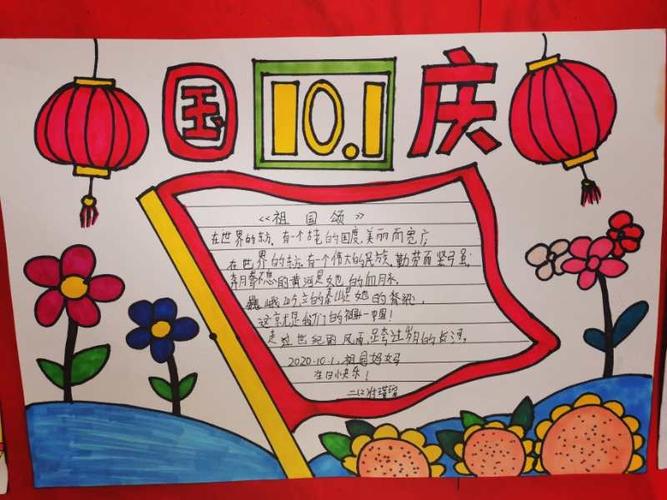 国 10.1 庆
《祖国颂》
在世界的东方,有一个古老的国度,美丽而宽广
在世界的东方,有一个伟大的民族,勤劳而坚强
奔腾不息的黄河是她的血脉
巍峨屹立的泰山是她的脊梁
这就是我们的祖国—中国!
走过世纪的风雨,跨过岁月的长河。
2020.10.1,祖国妈妈
生日快乐!
二(2)